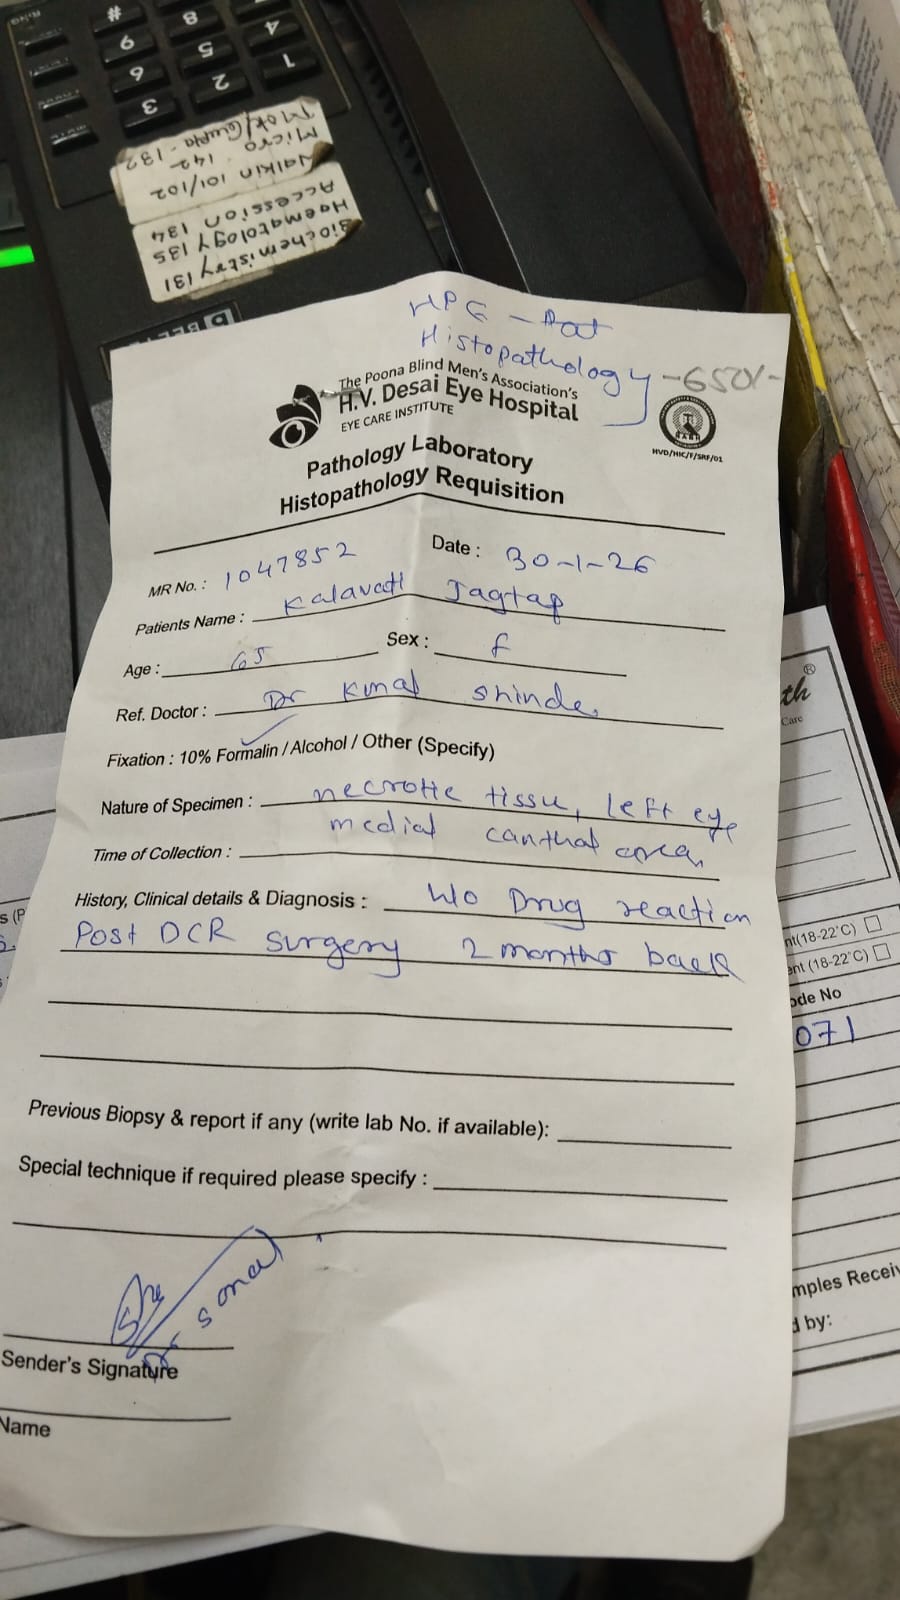 #
9 8
6 5 4
3 2 1
Mok/Gupta - 132
Micro - 142
Nalkin 101/102
Accession 134
Haematology 135
Biochemistry 131
BEETEL
HPE -
Histopathology -650/-
The Poona Blind Men's Association's
H.V. Desai Eye Hospital
EYE CARE INSTITUTE
HVD/HIC/F/SRF/01
Pathology Laboratory
Histopathology Requisition
MR No. : 1047852 Date : 30-1-26
Patients Name : Kalavati Jagtap
Age : 65 Sex : f
Ref. Doctor : Dr Kunal Shinde
Fixation : 10% Formalin / Alcohol / Other (Specify)
Nature of Specimen : necrotic tissue, left eye
medial canthal area,
Time of Collection :
History, Clinical details & Diagnosis : H/o Drug reaction
Post DCR surgery 2 months back
Previous Biopsy & report if any (write lab No. if available):
Special technique if required please specify :
Dr Sonal
Sender's Signature
Name
th®
Care
nt(18-22°C)
ent (18-22°C)
ode No
071
mples Receiv
d by: